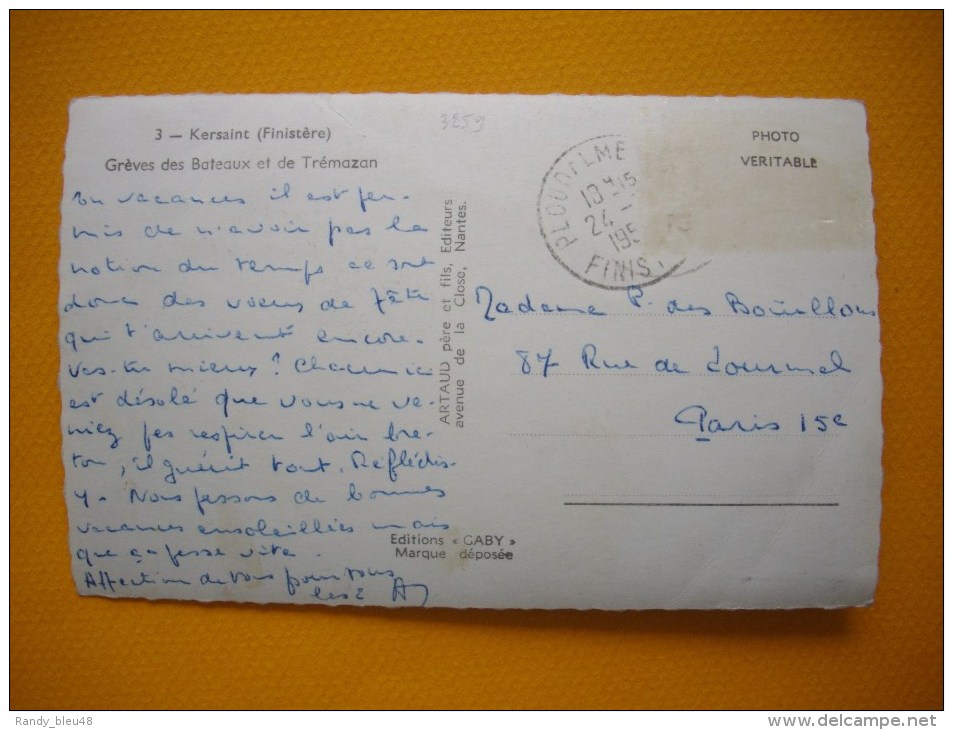 3259
3 — Kersaint (Finistère)
Grèves des Bateaux et de Trémazan
PHOTO
VERITABLE
PLOUDALMEZ
18H15
24 -
195
FINIS.
En vacances il est per-
mis de n'avoir pas la
notion du temps ce sont
donc des vœux de fête
qui t'arrivent encore.
Vas-tu mieux ? Chacun ici
est désolé que vous ne ve-
niez pas respirer l'air bre-
ton, il guérit tout. Réfléchis-
y. Nous passons de bonnes
vacances ensoleillées mais
que ça passe vite.
Affection de tous pour vous
les 2
ARTAUD père et fils, Editeurs
avenue de la Close, Nantes.
Madame P. des Bouillons
87 Rue de Lourmel
Paris 15e
Editions « GABY »
Marque déposée
Randy_bleu48
http://www.delcampe.net